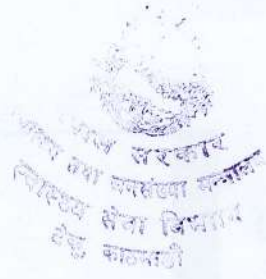 नेपाल सरकार
तथा जनसंख्या मन्त्रालय
स्वास्थ्य सेवा विभाग
टेकु काठमाडौं